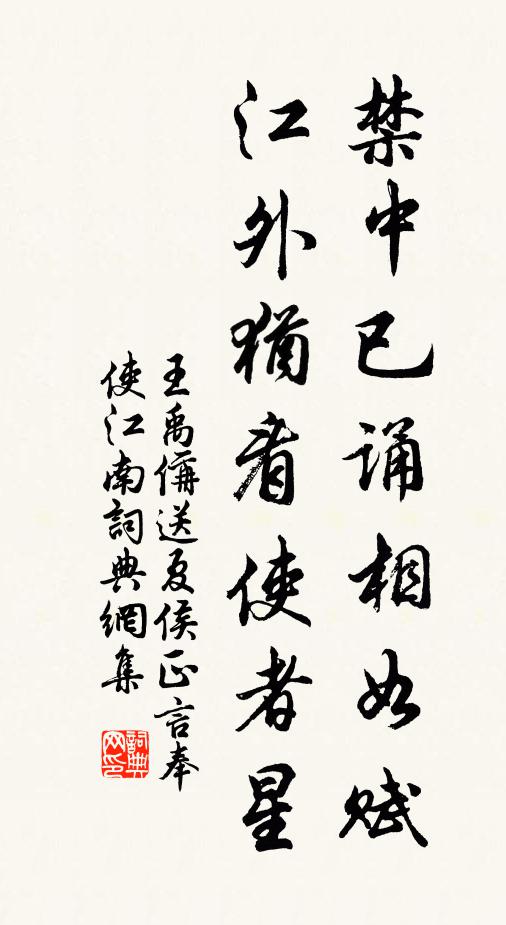 禁中已誦相如賦
江外猶看使者星
王禹偁送夏侯正言奉
使江南詞典網集
詞典
网印